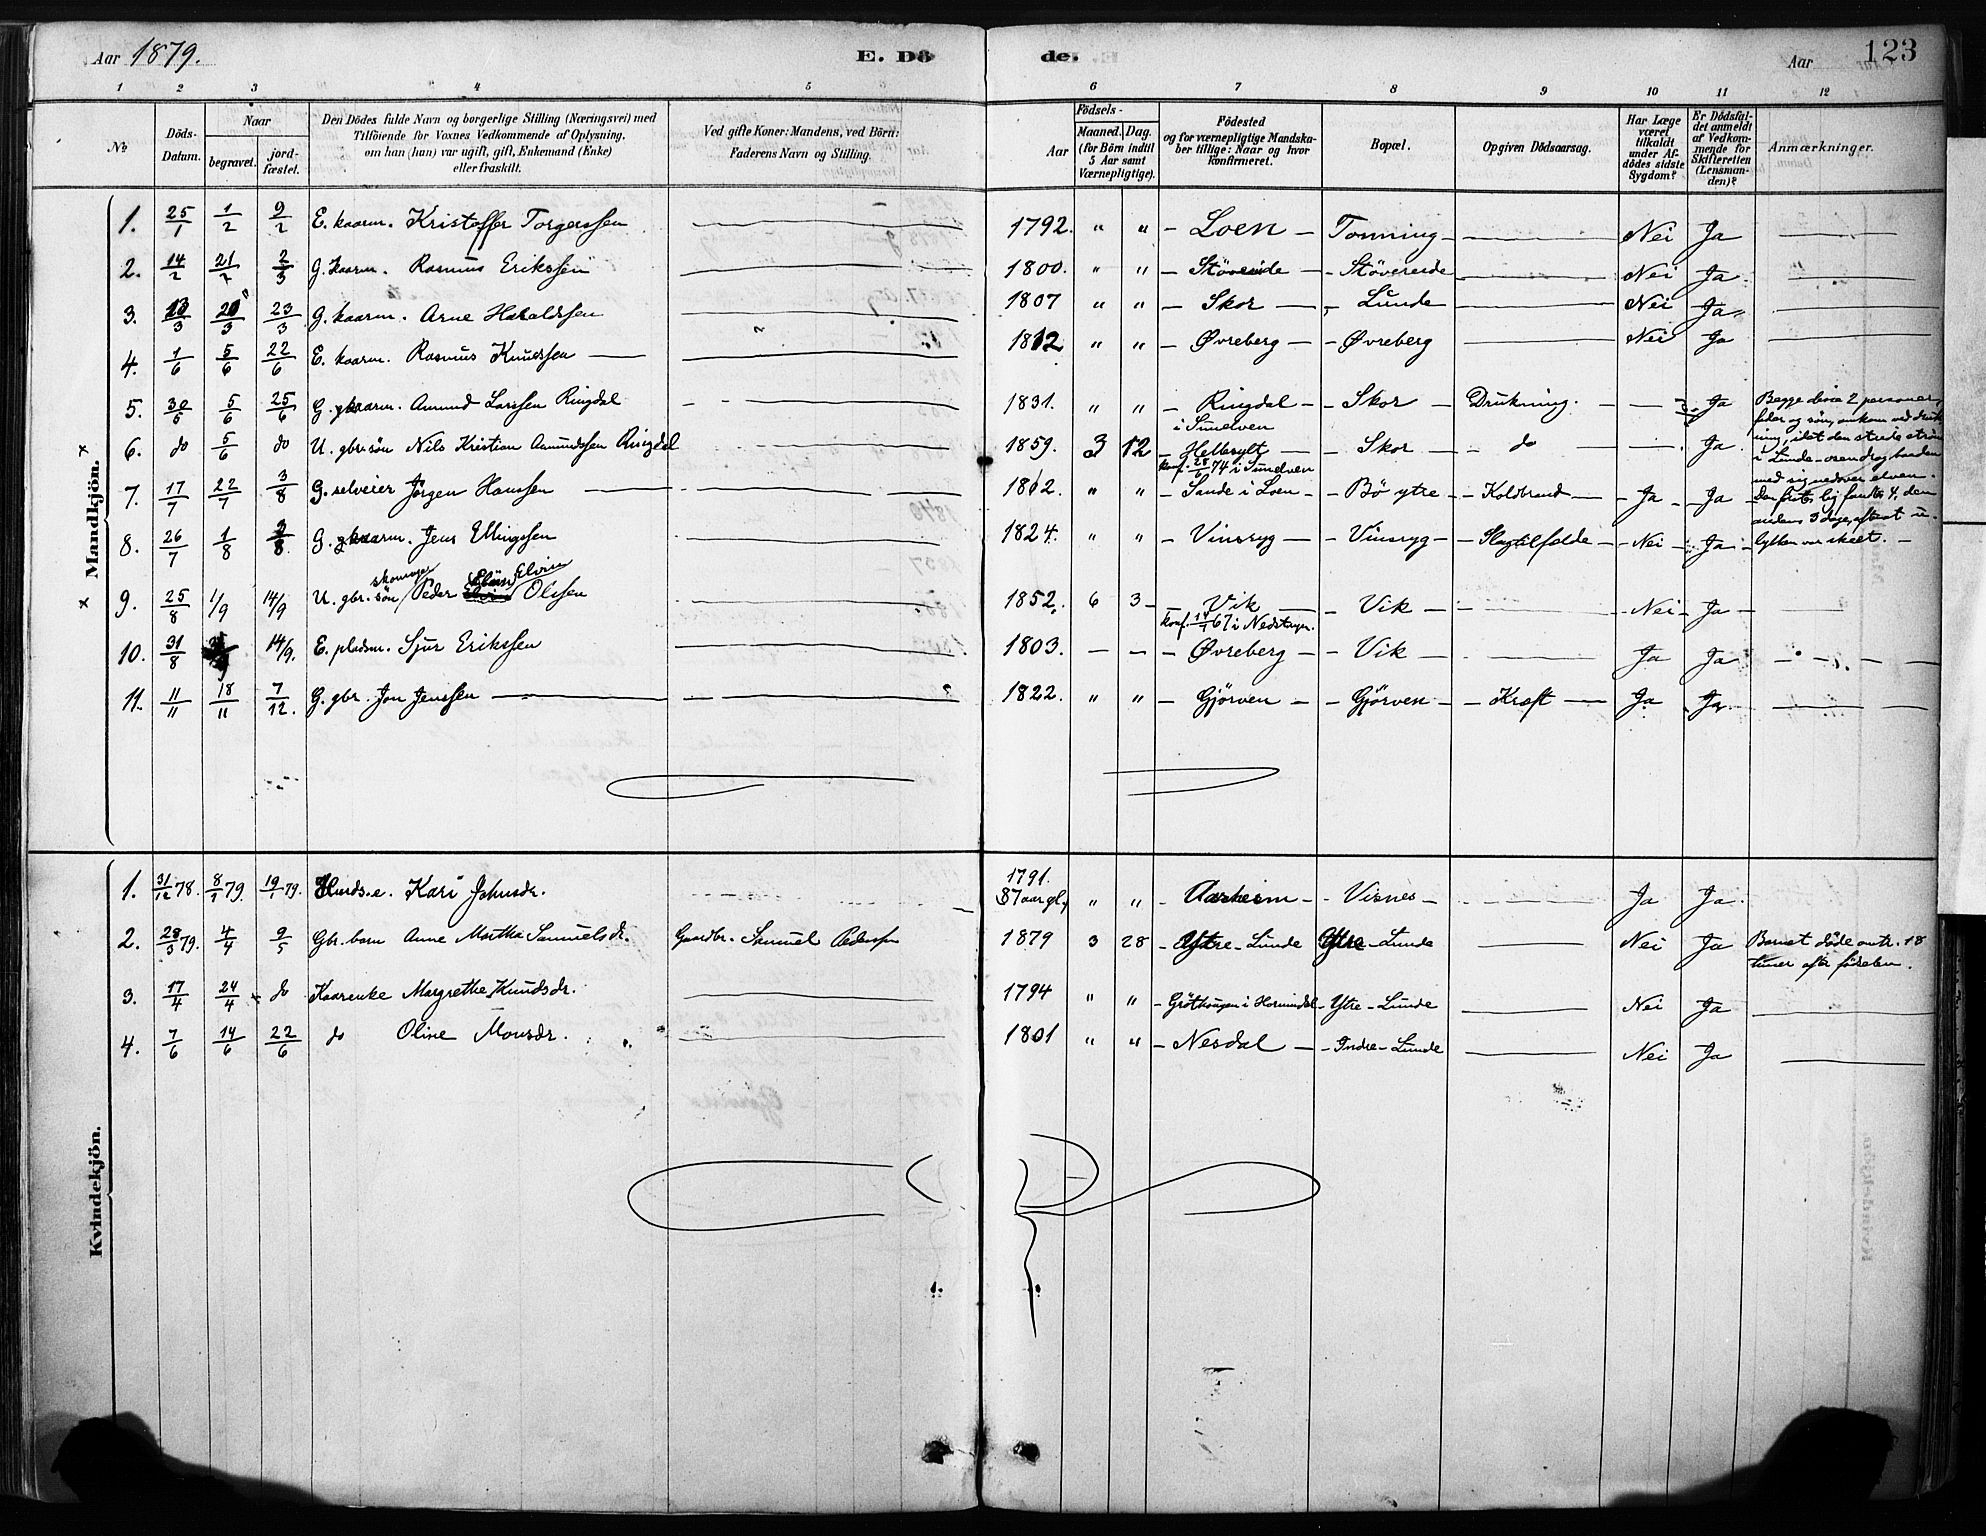 Aar 1879. E. Dö de. Aar 123
1 2 3 4 5 6 7 8 9 10 11 12
№ Döds-Datum. Naar begravet. jord-fæstet. Den Dödes fulde Navn og borgerlige Stilling (Næringsvei) med Tilföiende for Voxnes Vedkommende af Oplysning, om han (hun) var ugift, gift, Enkemand (Enke) eller fraskilt. Ved gifte Koner: Mandens, ved Börn: Faderens Navn og Stilling. Aar Födsels- Maaned. Dag. (for Börn indtil 5 Aar samt Værnepligtige). Födested og for værnepligtige Mandska-ber tillige: Naar og hvor Konfirmeret. Bopæl. Opgiven Dödsaarsag. Har Læge været tilkaldt under Af-dödes sidste Sygdom? Er Dödsfal-det anmeldt af Vedkom-mende for Skifteretten (Lensman-den)? Anmærkninger.
Mandkjön.
1. 25/1 1/2 9/2 E. kaarm. Kristoffer Torgerssen 1792. " " - Loen - Tonning - Nei Ja
2. 14/2 21/2 2/3 G. kaarm. Rasmus Erikssen 1800. " " - Støvereide - Støvereide Nei Ja
3. 13/3 20/3 23/3 G. kaarm. Arne Haraldssen 1807 " " - Skor - Lunde Nei Ja
4. 1/6 5/6 22/6 E. kaarm. Rasmus Knudssen 1812 " " - Øvreberg - Øvreberg Nei Ja
5. 30/5 5/6 25/6 G. kaarm. Amund Larssen Ringdal 1831. " " - Ringdal i Sunelven - Skor - Drukning. - Ja Begge disse 2 personer,
6. do 5/6 do U. gbr. søn Nils Kristian Aamundssen Ringdal 1859. 3 12 - Hellesylt - Skor - do - Ja fader og søn, omkom ved druk-
konf. 28/6 74 i Sunelven ning, idet den stride strøm
i Lunde-osen drog baaden
7. 17/7 22/7 3/8 G. selveier Jørgen Hanssen 1812. " " - Sande i Loen - Bø ytre - Koldbrand - Ja - Ja - med sig nedover elven.
Den førstes lig fandtes 4, den
8. 26/7 1/8 3/8 G. kaarm. Jens Ellingssen 1824. " " - Vinsryg - Vinsryg - Slagtilfælde - Nei - Ja - andens 3 dage, efterat u-
lykken var skeet. -
9. 25/8 1/9 14/9 U. gbr. søn skomager Peder Elvin Olssen 1852. 6 3 - Vik - Vik - Nei - Ja -
konf. 67 i Nedstryn.
10. 31/8 14/9. E. pladsm. Sjur Erikssen 1803. - - - Øvreberg - Vik - Ja Ja
11. 11/11 18/11 7/12. G. gbr. Jon Jenssen 1822. " " - Gjørven - Gjørven - Kræft - Ja Ja
Kvindekjön.
1. 31/12 78. 8/1 79. 19/1 79. Hunds. e. Kari Johnsdr. 1791. 87 aar gl. " " - Aarheim - Visnes - Ja Ja.
2. 28/3 79. 4/4 9/5 Gbr. barn Anne Martha Samuelsdr. Gaardbr. Samuel Pederssen 1879 3 28 - Ytre-Lunde Ytre-Lunde Nei Ja Barnet døde omtr. 18
timer efter fødselen.
3. 17/4 24/4 do Kaarenke Margrethe Knudsdr. 1794 " " - Grøthaugen i Hornindal - Ytre-Lunde Nei Ja
4. 7/6 14/6 22/6 do Oline Monsdr. 1801 " " - Nesdal - Indre-Lunde Nei Ja